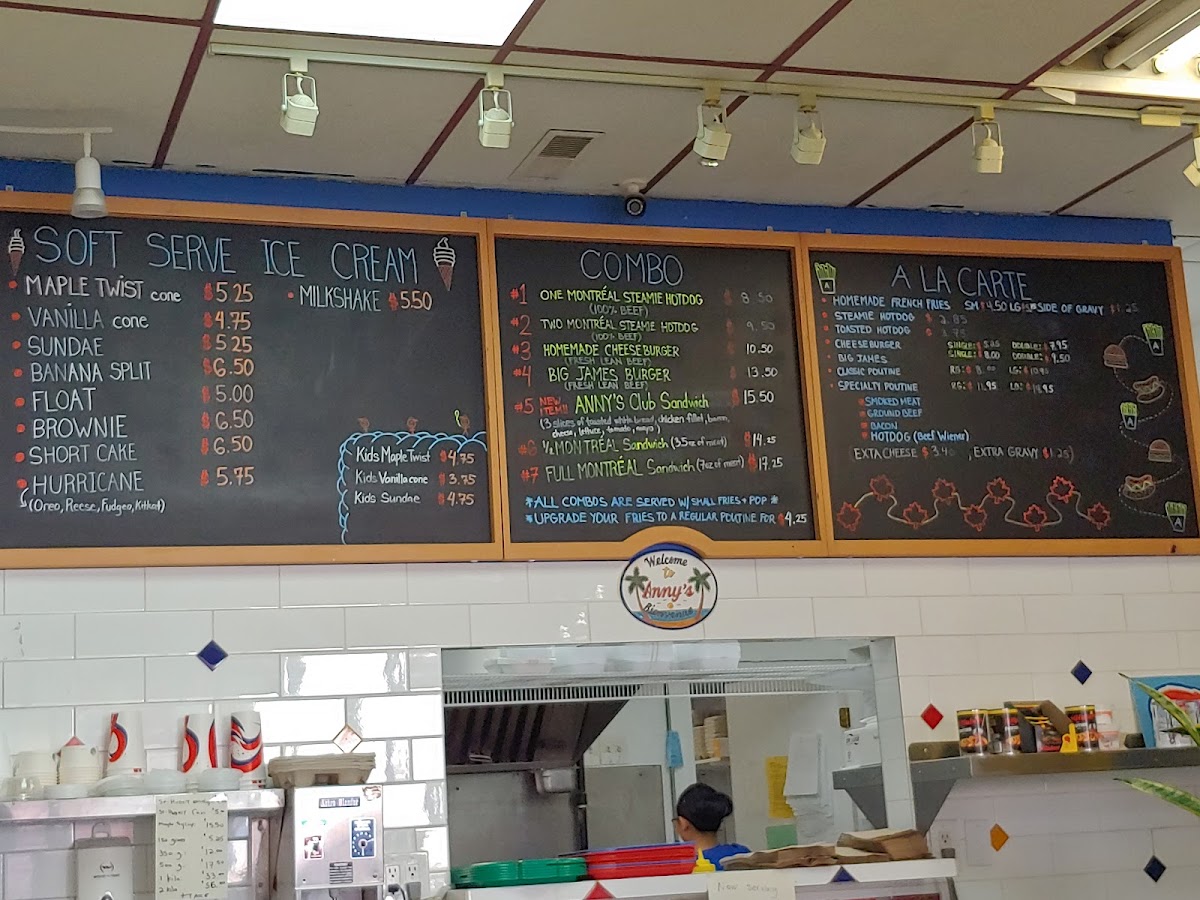 SOFT SERVE ICE CREAM
• MAPLE TWIST cone $5.25
• VANILLA cone $4.75
• SUNDAE $5.25
• BANANA SPLIT $6.50
• FLOAT $5.00
• BROWNIE $6.50
• SHORT CAKE $6.50
• HURRICANE $5.75
(Oreo, Reese, Fudgeo, Kitkat)
• MILKSHAKE $5.50
Kids Maple Twist $4.75
Kids Vanilla cone $3.75
Kids Sundae $4.75
COMBO
#1 ONE MONTRÉAL STEAMIE HOTDOG $8.50
(100% BEEF)
#2 TWO MONTRÉAL STEAMIE HOTDOG $9.50
(100% BEEF)
#3 HOMEMADE CHEESEBURGER $10.50
(FRESH LEAN BEEF)
#4 BIG JAMES BURGER $13.50
(FRESH LEAN BEEF)
#5 NEW ITEM!! ANNY'S Club Sandwich $15.50
(3 slices of toasted white bread, chicken fillet, bacon,
cheese, lettuce, tomato, mayo)
#6 ½ MONTRÉAL Sandwich (3.5oz of meat) $14.25
#7 FULL MONTRÉAL Sandwich (7oz of meat) $17.25
*ALL COMBOS ARE SERVED W/ SMALL FRIES + POP *
*UPGRADE YOUR FRIES TO A REGULAR POUTINE FOR $4.25
A LA CARTE
• HOMEMADE FRENCH FRIES SM $4.50 LG SIDE OF GRAVY $1.25
• STEAMIE HOTDOG $2.85
• TOASTED HOTDOG
• CHEESEBURGER SINGLE: $5.85 DOUBLE: $7.95
• BIG JAMES SINGLE: $8.00 DOUBLE: $9.50
• CLASSIC POUTINE RG: LG:
• SPECIALTY POUTINE RG: $11.95 LG: $14.95
SMOKED MEAT
GROUND BEEF
BACON
HOTDOG (Beef Wiener)
(EXTA CHEESE $3.40, EXTRA GRAVY $1.25)
Welcome
to
Anny's
Bienvenue
Astro-Blender
Now serving